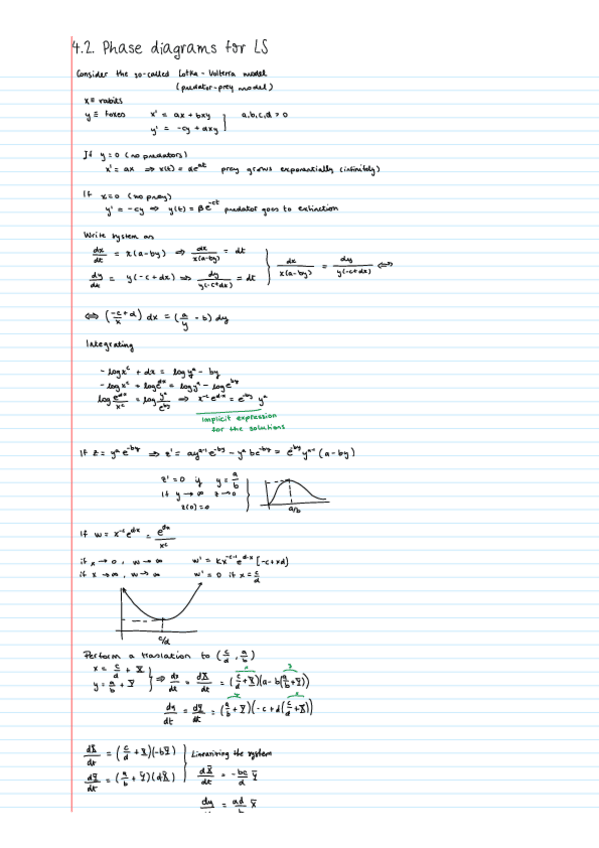 4.2. Phase diagrams for LS
Consider the so-called Lotka-Volterra model
(predator-prey model)
x ≡ rabits
y ≡ foxes x' = ax + bxy a,b,c,d > 0
y' = -cy + dxy
If y=0 (no predators)
x' = ax ⇒ x(t) = αe^{at} prey grows exponentially (infinitely)
If x=0 (no prey)
y' = -cy ⇒ y(t) = βe^{-ct} predator goes to extinction
Write system as
dx/dt = x(a-by) ⇒ dx/x(a-by) = dt
dy/dt = y(-c+dx) ⇒ dy/y(-c+dx) = dt
dx/x(a-by) = dy/y(-c+dx) ⇔
⇔ (-c/x + d) dx = (a/y - b) dy
Integrating
-log x^c + dx = log y^a - by
-log x^c + log e^{dx} = log y^a - log e^{by}
log e^{dx}/x^c = log y^a/e^{by} ⇒ x^{-c} e^{dx} = e^{-by} y^a
Implicit expression
for the solutions
If z = y^a e^{-by} ⇒ z' = ay^{a-1} e^{-by} - y^a be^{-by} = e^{-by} y^{a-1} (a-by)
z'=0 if y = a/b
If y → ∞ z → 0
z(0) = 0
a/b
If w = x^{-c} e^{dx} = e^{dx}/x^c
if x → 0, w → ∞ w' = x^{-c-1} e^{dx} [-c+xd]
if x → ∞, w → ∞ w' = 0 if x = c/d
c/d
Perform a translation to (c/d, a/b)
x = c/d + X ⇒ dx/dt = dX/dt = (c/d + X)(a - b(a/b + Y))
y = a/b + Y
dy/dt = dY/dt = (a/b + Y)(-c + d(c/d + X))
dX/dt = (c/d + X)(-bY) Linearizing the system
dY/dt = (a/b + Y)(dX) dX/dt = -bc/d Y
dY/dt = ad/b X